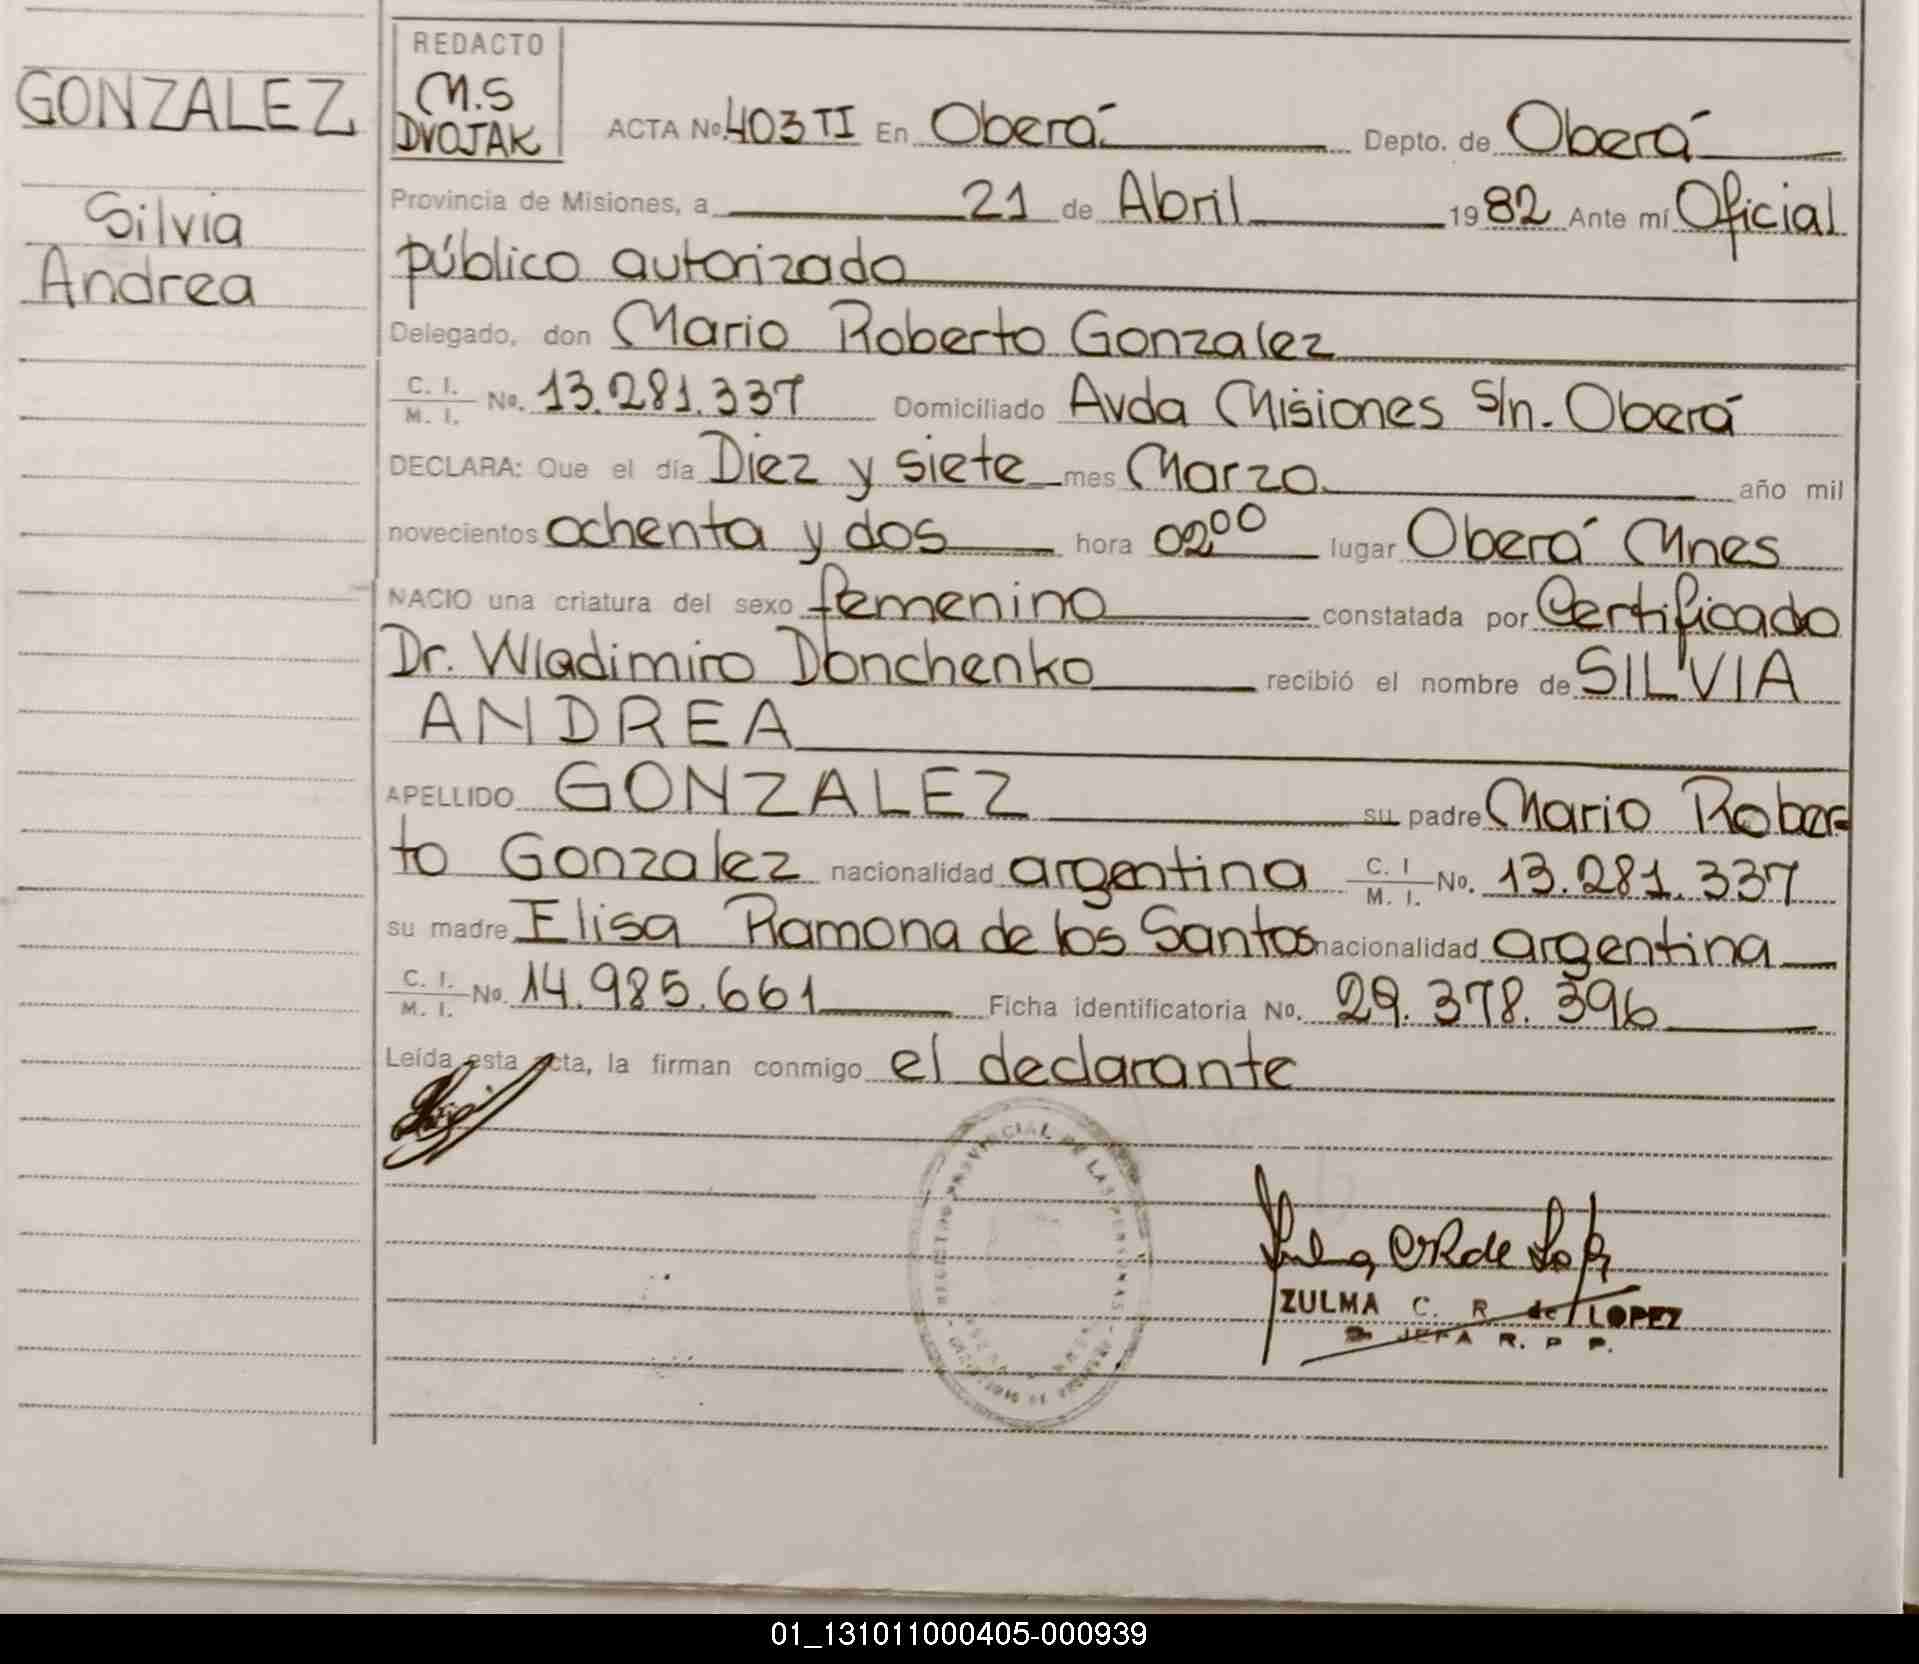 GONZALEZ
Silvia
Andrea
REDACTO
M.S
DVOJAK
ACTA No. 403 TI En Oberá Depto. de Oberá
Provincia de Misiones, a 21 de Abril 1982 Ante mí Oficial
público autorizado
Delegado, don Mario Roberto Gonzalez
C. I. / M. I. No. 13.281.337 Domiciliado Avda Misiones S/n. Oberá
DECLARA: Que el día Diez y siete mes Marzo año mil
novecientos ochenta y dos hora 02⁰⁰ lugar Oberá Mnes
NACIO una criatura del sexo femenino constatada por Certificado
Dr. Wladimiro Donchenko recibió el nombre de SILVIA
ANDREA
APELLIDO GONZALEZ su padre Mario Rober-
to Gonzalez nacionalidad argentina C. I / M. I. No. 13.281.337
su madre Elisa Ramona de los Santos nacionalidad argentina
C. I. / M. I. No. 14.985.661 Ficha identificatoria No. 29.378.396
Leída esta acta, la firman conmigo el declarante
REGISTRO PROVINCIAL DE LAS PERSONAS
ZULMA C. R. de LOPEZ
JEFA R. P. P.
01_131011000405-000939